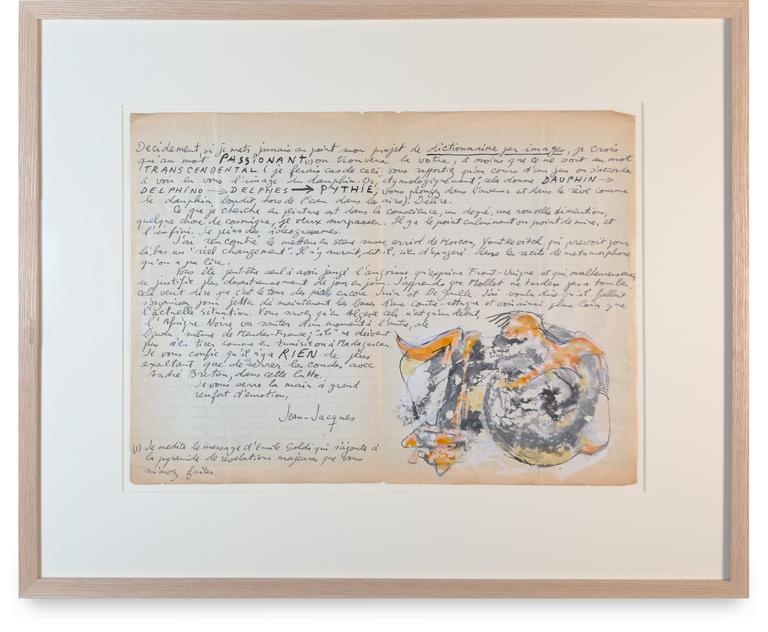 Decidement, si je mets jamais au point mon projet de dictionnaire par images, je crois
qu'au mot PASSIONANT (1) on trouvera la votre, à moins que ce ne soit au mot
TRANSCENDENTAL (je ferais cas de ceci: vous rapportez qu'au cours d'un jeu on s'accorda
à voir en vous l'image du dauphin. Or, etymologiquement, cela donne DAUPHIN →
DELPHINO → DELPHES → PYTHIE, vous plongez dans l'avenir et dans le rêve comme
le dauphin bondit hors de l'eau dans les airs). Delire.
Ce que je cherche en peinture est dans la conscience, un degré, une nouvelle dimention,
quelque chose de cosmique, je veux surpasser. Il y a le point culminant ou point de mire, et
l'infini. Je peins des ideogrammes.
J'ai rencontré le metteur en scene russe arrivé de Moscou, Youtkevitch qui prevoit pour
là-bas un "réel changement". Il n'y aurait, dit-il, rien d'exagéré dans les recits de metamorphose
qu'on a pu lire.
Vous êtes peut-être seul à avoir jaugé l'angoisse qu'exprime Front-Unique et qui, malheureusement
se justifie plus desastreusement de jour en jour. J'apprends que Mollet ne tardera pas a tomber
cela veut dire que c'est le tour des pires encore Juin et De Gaulle. J'ai voulu dire qu'il fallait
s'organiser pour jetter dès maintenant les bases d'une contre-attaque et voir aussi plus loin que
l'actuelle situation. Vous savez qu'en Algerie cela n'est qu'un debut,
l'Afrique Noire va sauter d'un moment à l'autre, de
l'aveu même de Mendes-France; "ils" ne doivent
plus s'en tirer comme en Tunisie ou à Madagascar.
Je vous confie qu'il n'y a RIEN de plus
exaltant que de serrer les coudes, avec
André Breton, dans cette lutte.
Je vous serre la main à grand
renfort d'emotion,
Jean-Jacques
(1) Je medite le message d'Emile Goldi qui s'ajoute à
la pyramide de revelations majeures que vous
m'avez faites.